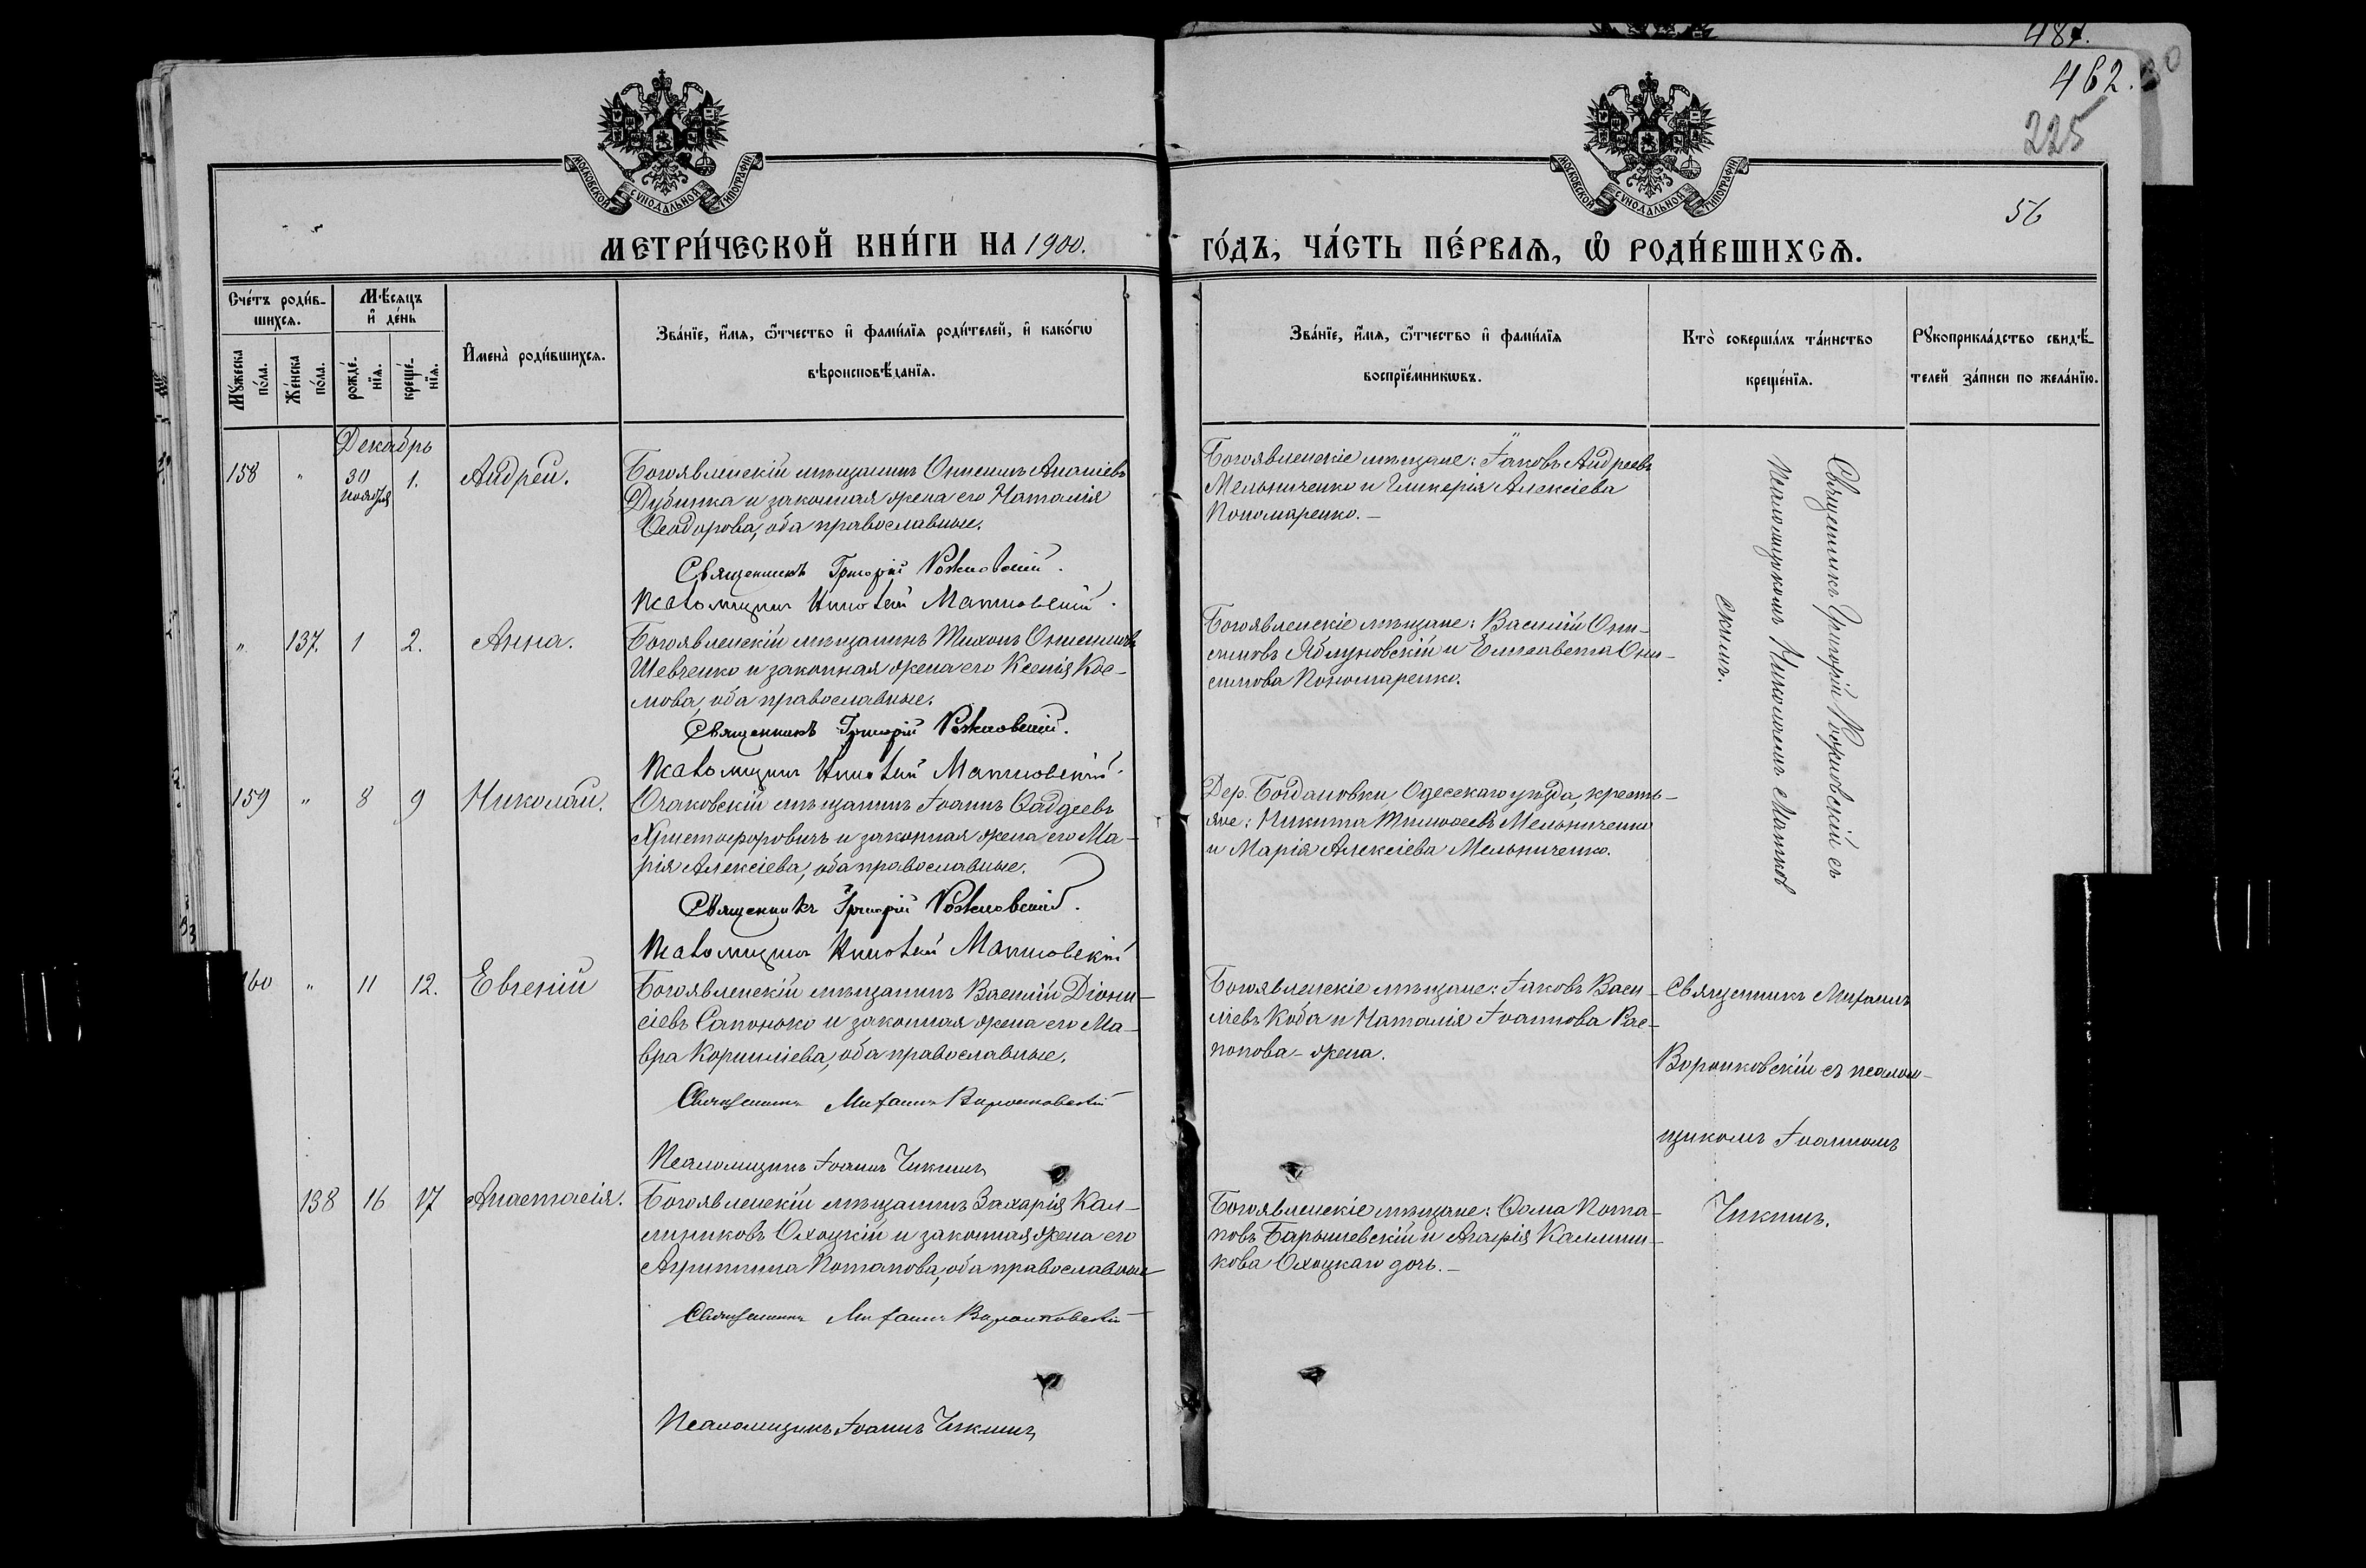 487.
462.
225
56
МОСКОВСКОЙ СУНОДАЛЬНОЙ ТИПОГРАФІИ
МОСКОВСКОЙ СУНОДАЛЬНОЙ ТИПОГРАФІИ
МЕТРИ́ЧЕСКОЙ КНИ́ГИ НА 1900.
ГО́ДЪ, ЧА́СТЬ ПЕ́РВАѦ, Ѡ҆ РОДИ́ВШИХСѦ.
Сче́тъ роди́в-
шихсѧ.
Мꙋ́жеска по́ла.
Же́нска по́ла.
Мѣ́сѧцъ и҆ де́нь
рожде́-нїѧ.
креще́-нїѧ.
И҆мена̀ роди́вшихсѧ.
Зва́нїе, и҆́мѧ, ѻ҆́тчество и҆ фами́лїѧ роди́телей, и҆ како́гѡ
вѣроисповѣ́данїѧ.
Зва́нїе, и҆́мѧ, ѻ҆́тчество и҆ фами́лїѧ
воспрїе́мникѡвъ.
Кто̀ соверша́лъ та́инство
креще́нїѧ.
Рꙋкоприкла́дство свидѣ́-
телей за́писи по жела́нїю.
Декабрь
158 " 30 ноября 1. Андрей.
Богоявленскій мѣщанинъ Онисимъ Ананіевъ
Дубинка и законная жена его Наталія
Ѳеодорова, оба православные.
Священникъ Григорій
Псаломщикъ
Богоявленскіе мѣщане: Іаковъ Андреевъ
Мельниченко и Гликерія Алексіева
Пономаренко.
" 137. 1 2. Анна.
Богоявленскій мѣщанинъ Тихонъ Онисимовъ
Шевченко и законная жена его Ксенія Кос-
мова, оба православные.
Священникъ Григорій
Псаломщикъ
Богоявленскіе мѣщане: Василій Они-
симовъ Яблуновскій и Елисавета Они-
симова Пономаренко.
Священникъ Григорій съ
псаломщикомъ
159 " 8 9 Николай.
Очаковскій мѣщанинъ Іоаннъ Ѳаддеевъ
Христофоровичъ и законная жена его Ма-
рія Алексіева, оба православные.
Священникъ Григорій
Псаломщикъ
Дер. Богдановки Одесскаго уѣзда, кресть-
яне: Никита Тимоѳеевъ Мельниченко
и Марія Алексіева Мельниченко.
160 " 11 12. Евгеній
Богоявленскій мѣщанинъ Василій Діони-
сіевъ Сапонько и законная жена его Ма-
вра Корниліева, оба православные.
Священникъ Михаилъ Воронковскій
Псаломщикъ Іоаннъ Чикинъ
Богоявленскіе мѣщане: Іаковъ Васи-
ліевъ Коба и Наталія Іоаннова Рас-
попова - жена.
Священникъ Михаилъ
Воронковскій съ псалом-
щикомъ Іоанномъ
Чикинъ.
138 16 17 Анастасія.
Богоявленскій мѣщанинъ Захарія Кал-
линиковъ Охоцкій и законная жена его
Агриппина Потапова, оба православные
Священникъ Михаилъ Воронковскій
Псаломщикъ Іоаннъ Чикинъ
Богоявленскіе мѣщане: Ѳома Пота-
повъ Барышевскій и Агафія Каллини-
кова Охоцкаго дочь.